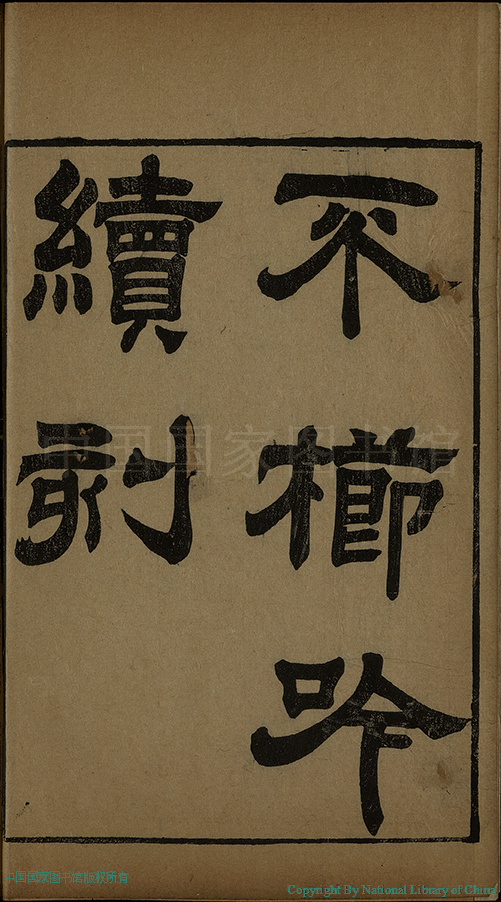 不櫛吟
續刻
中国国家图书馆
中国国家图书馆版权所有
Copyright By National Library of China